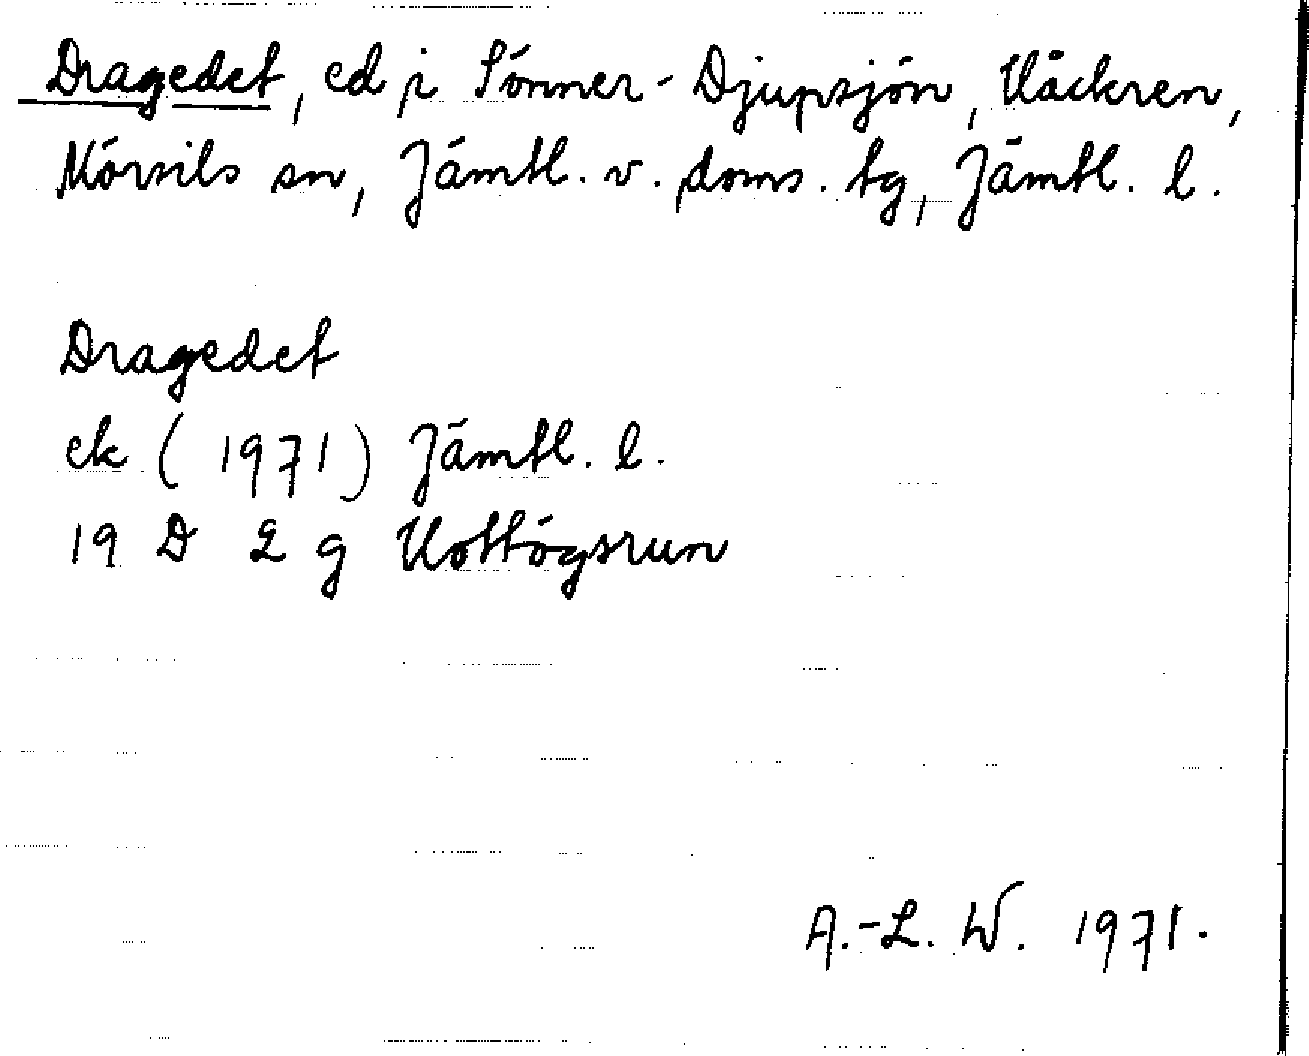 Dragedet, ed i Sönner-Djupsjön, Väckren,
Mörsils sn, Jämtl. v. doms. tg, Jämtl. l.
Dragedet
ek (1971) Jämtl. l.
19 D 2 g Kottögsrun
A.-L. W. 1971.